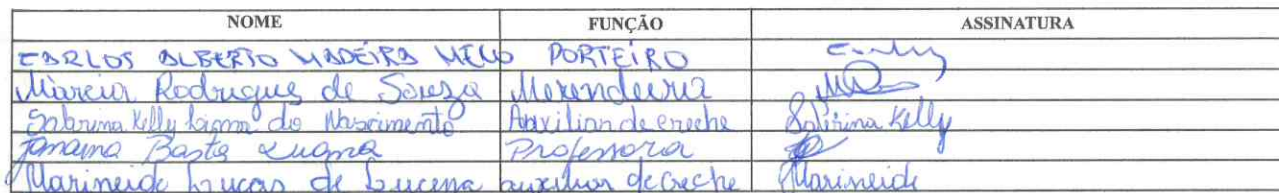 NOME FUNÇÃO ASSINATURA
CARLOS ALBERTO MADEIRA MELO PORTEIRO
Márcia Rodrigues de Souza Merendeira
Sabrina Kelly do Nascimento Auxiliar de creche Sabrina Kelly
Janaina Basta Luana Professora
Marineide Lucas de Lucena auxiliar de Creche Marineide